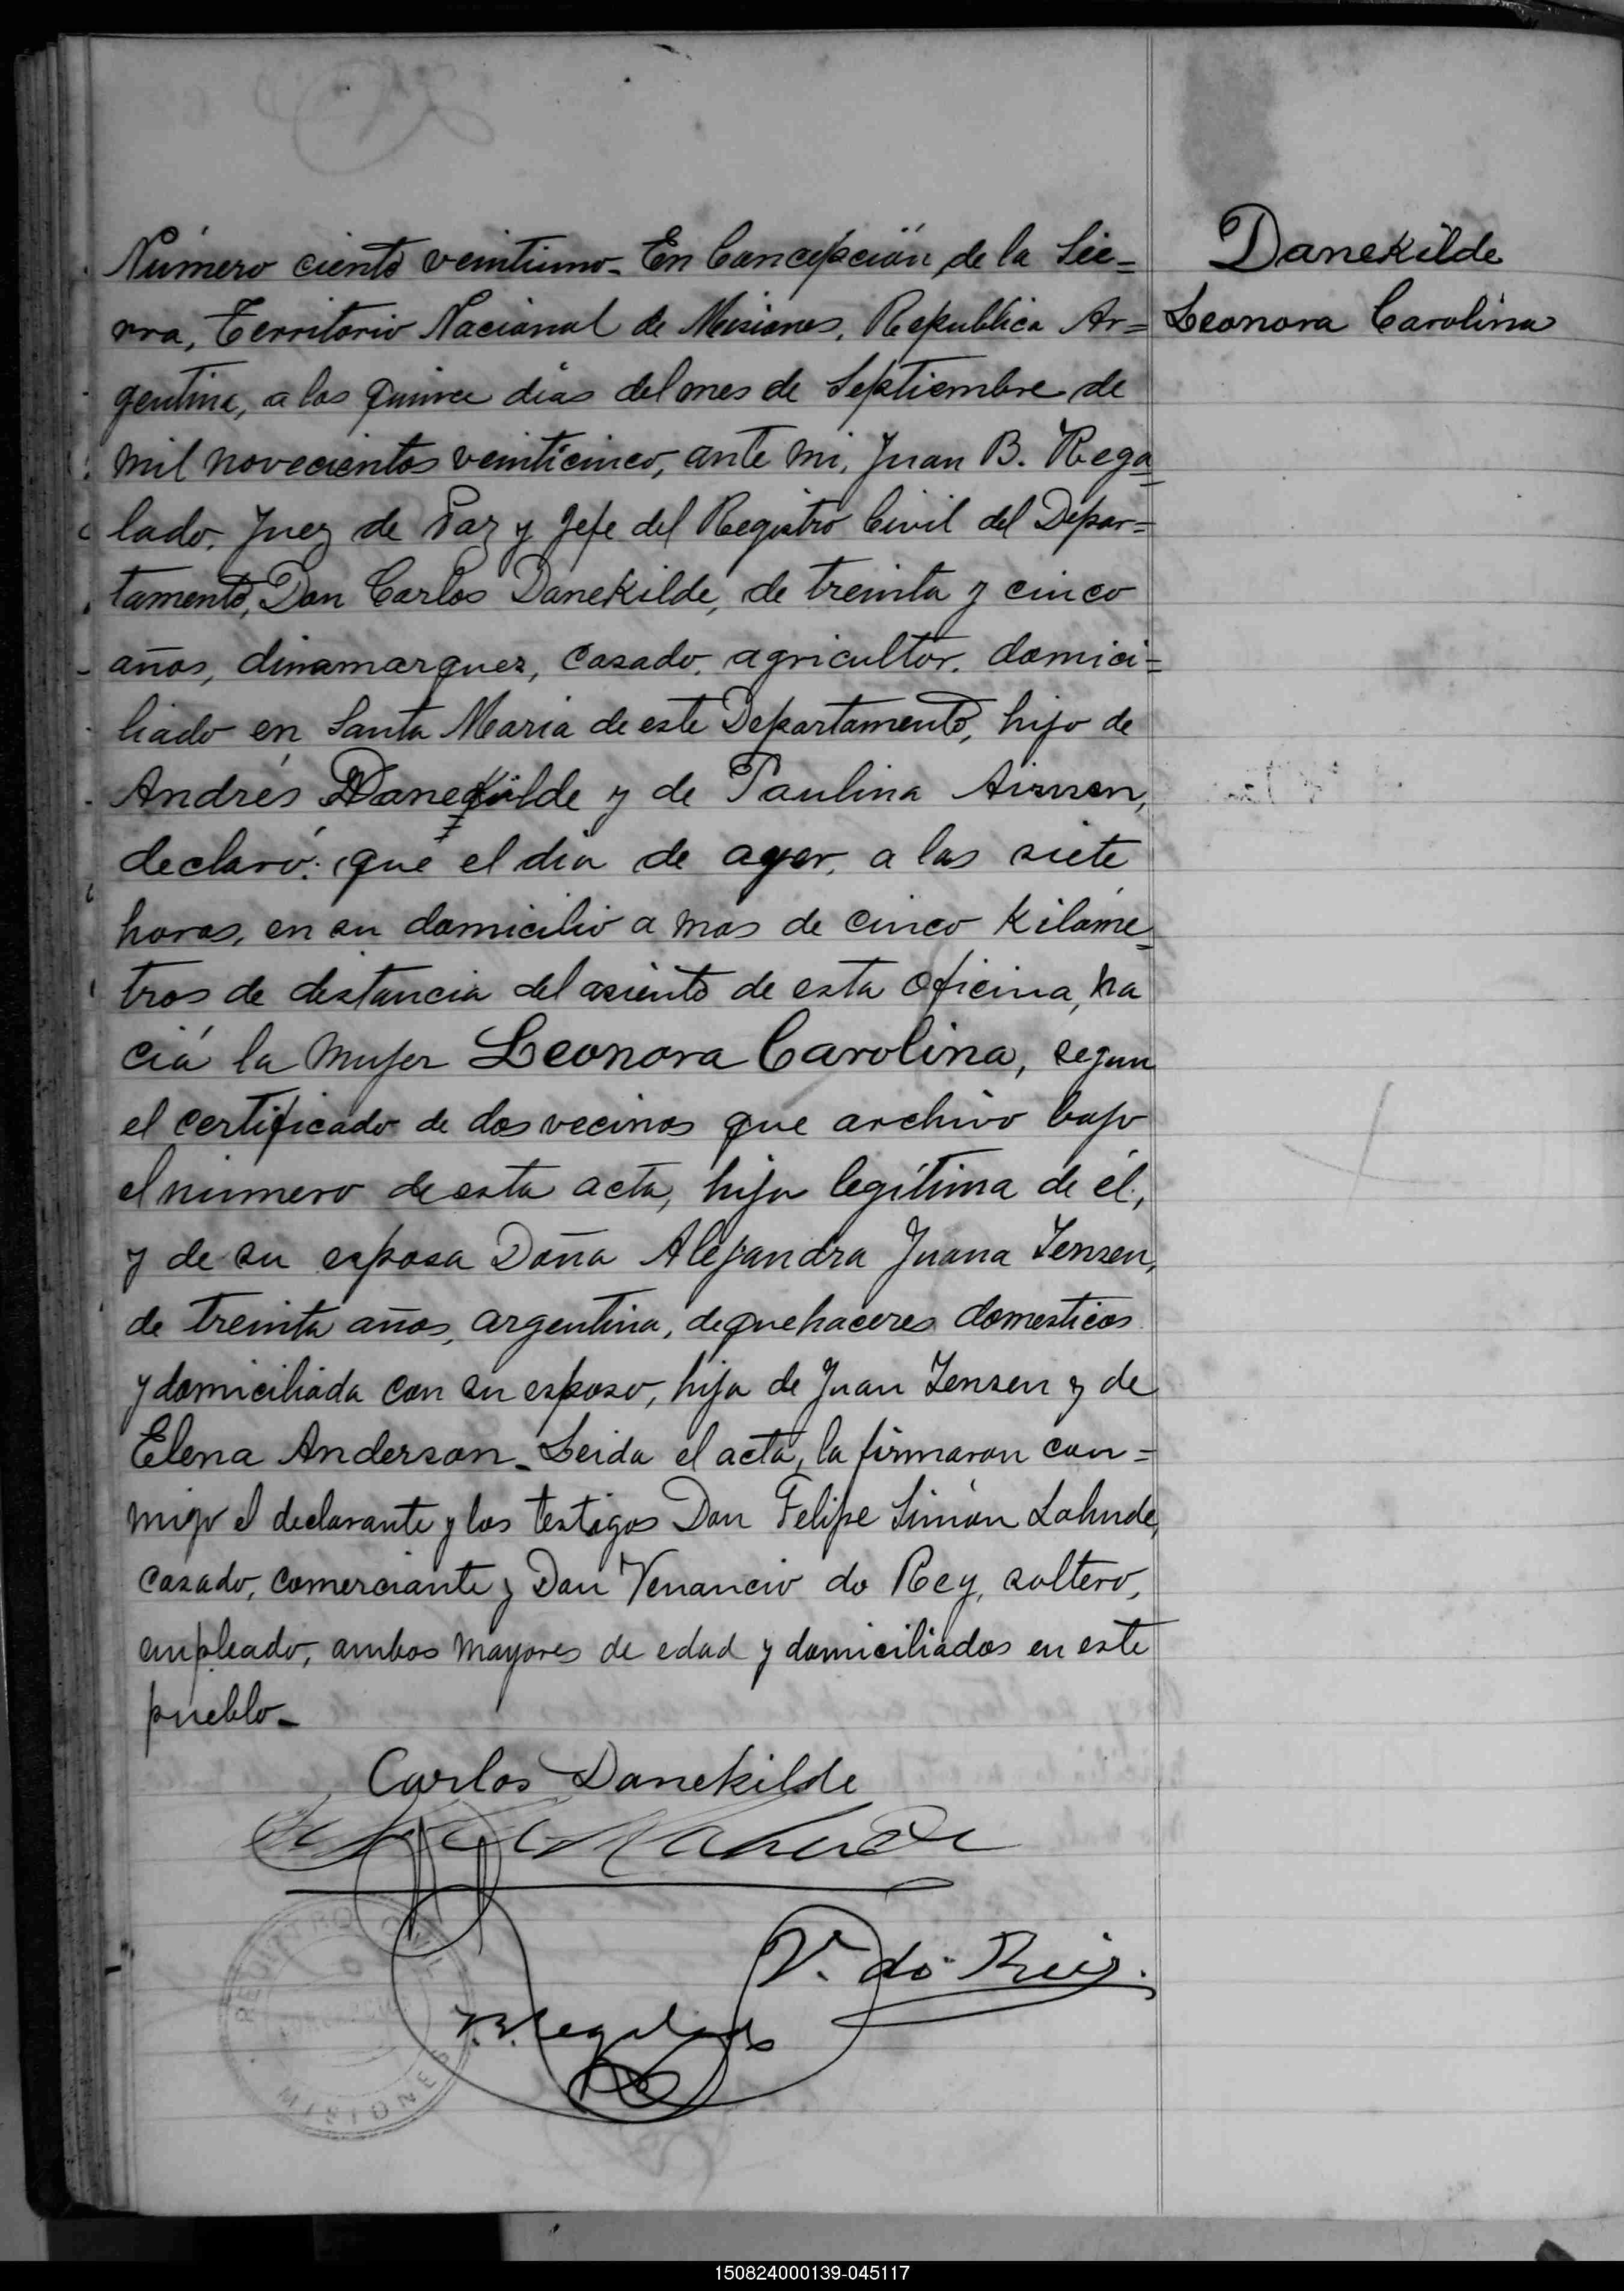 Número ciento veintiuno. En Concepción de la Sie=
rra, Territorio Nacional de Misiones, Republica Ar=
gentina, a los quince dias del mes de Septiembre de
mil novecientos veinticinco, ante mi, Juan B. Rega=
lado, Juez de Paz y Jefe del Registro Civil del Depar=
tamento, Don Carlos Danekilde, de treinta y cinco
años, dinamarques, casado, agricultor, domici=
liado en Santa Maria de este Departamento, hijo de
Andrés Danekilde y de Paulina
declaró: que el dia de ayer, a las siete
horas, en su domicilio a mas de cinco Kilóme=
tros de distancia del asiento de esta oficina, na
ció la mujer Leonora Carolina, segun
el certificado de dos vecinos que archivo bajo
el número de esta acta, hija legítima de él,
y de su esposa Doña Alejandra Juana Jensen,
de treinta años, argentina, de quehaceres domesticos
y domiciliada con su esposo, hija de Juan Jensen y de
Elena Anderson. Leida el acta, la firmaron con=
migo el declarante y los testigos Don Felipe Simón Lahude,
casado, comerciante y Don Venancio do Rey, soltero,
empleado, ambos mayores de edad y domiciliados en este
pueblo.
Danekilde
Leonora Carolina
Carlos Danekilde
V. do Reis.
REGISTRO CIVIL
MISIONES
150824000139-045117